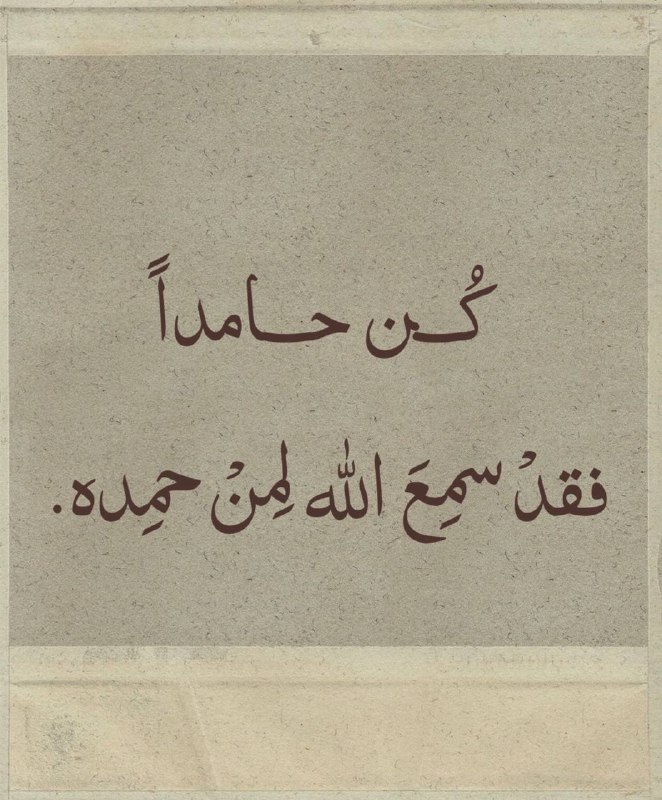 كُن حامداً
فقدْ سمِعَ الله لِمِنْ حمِده.